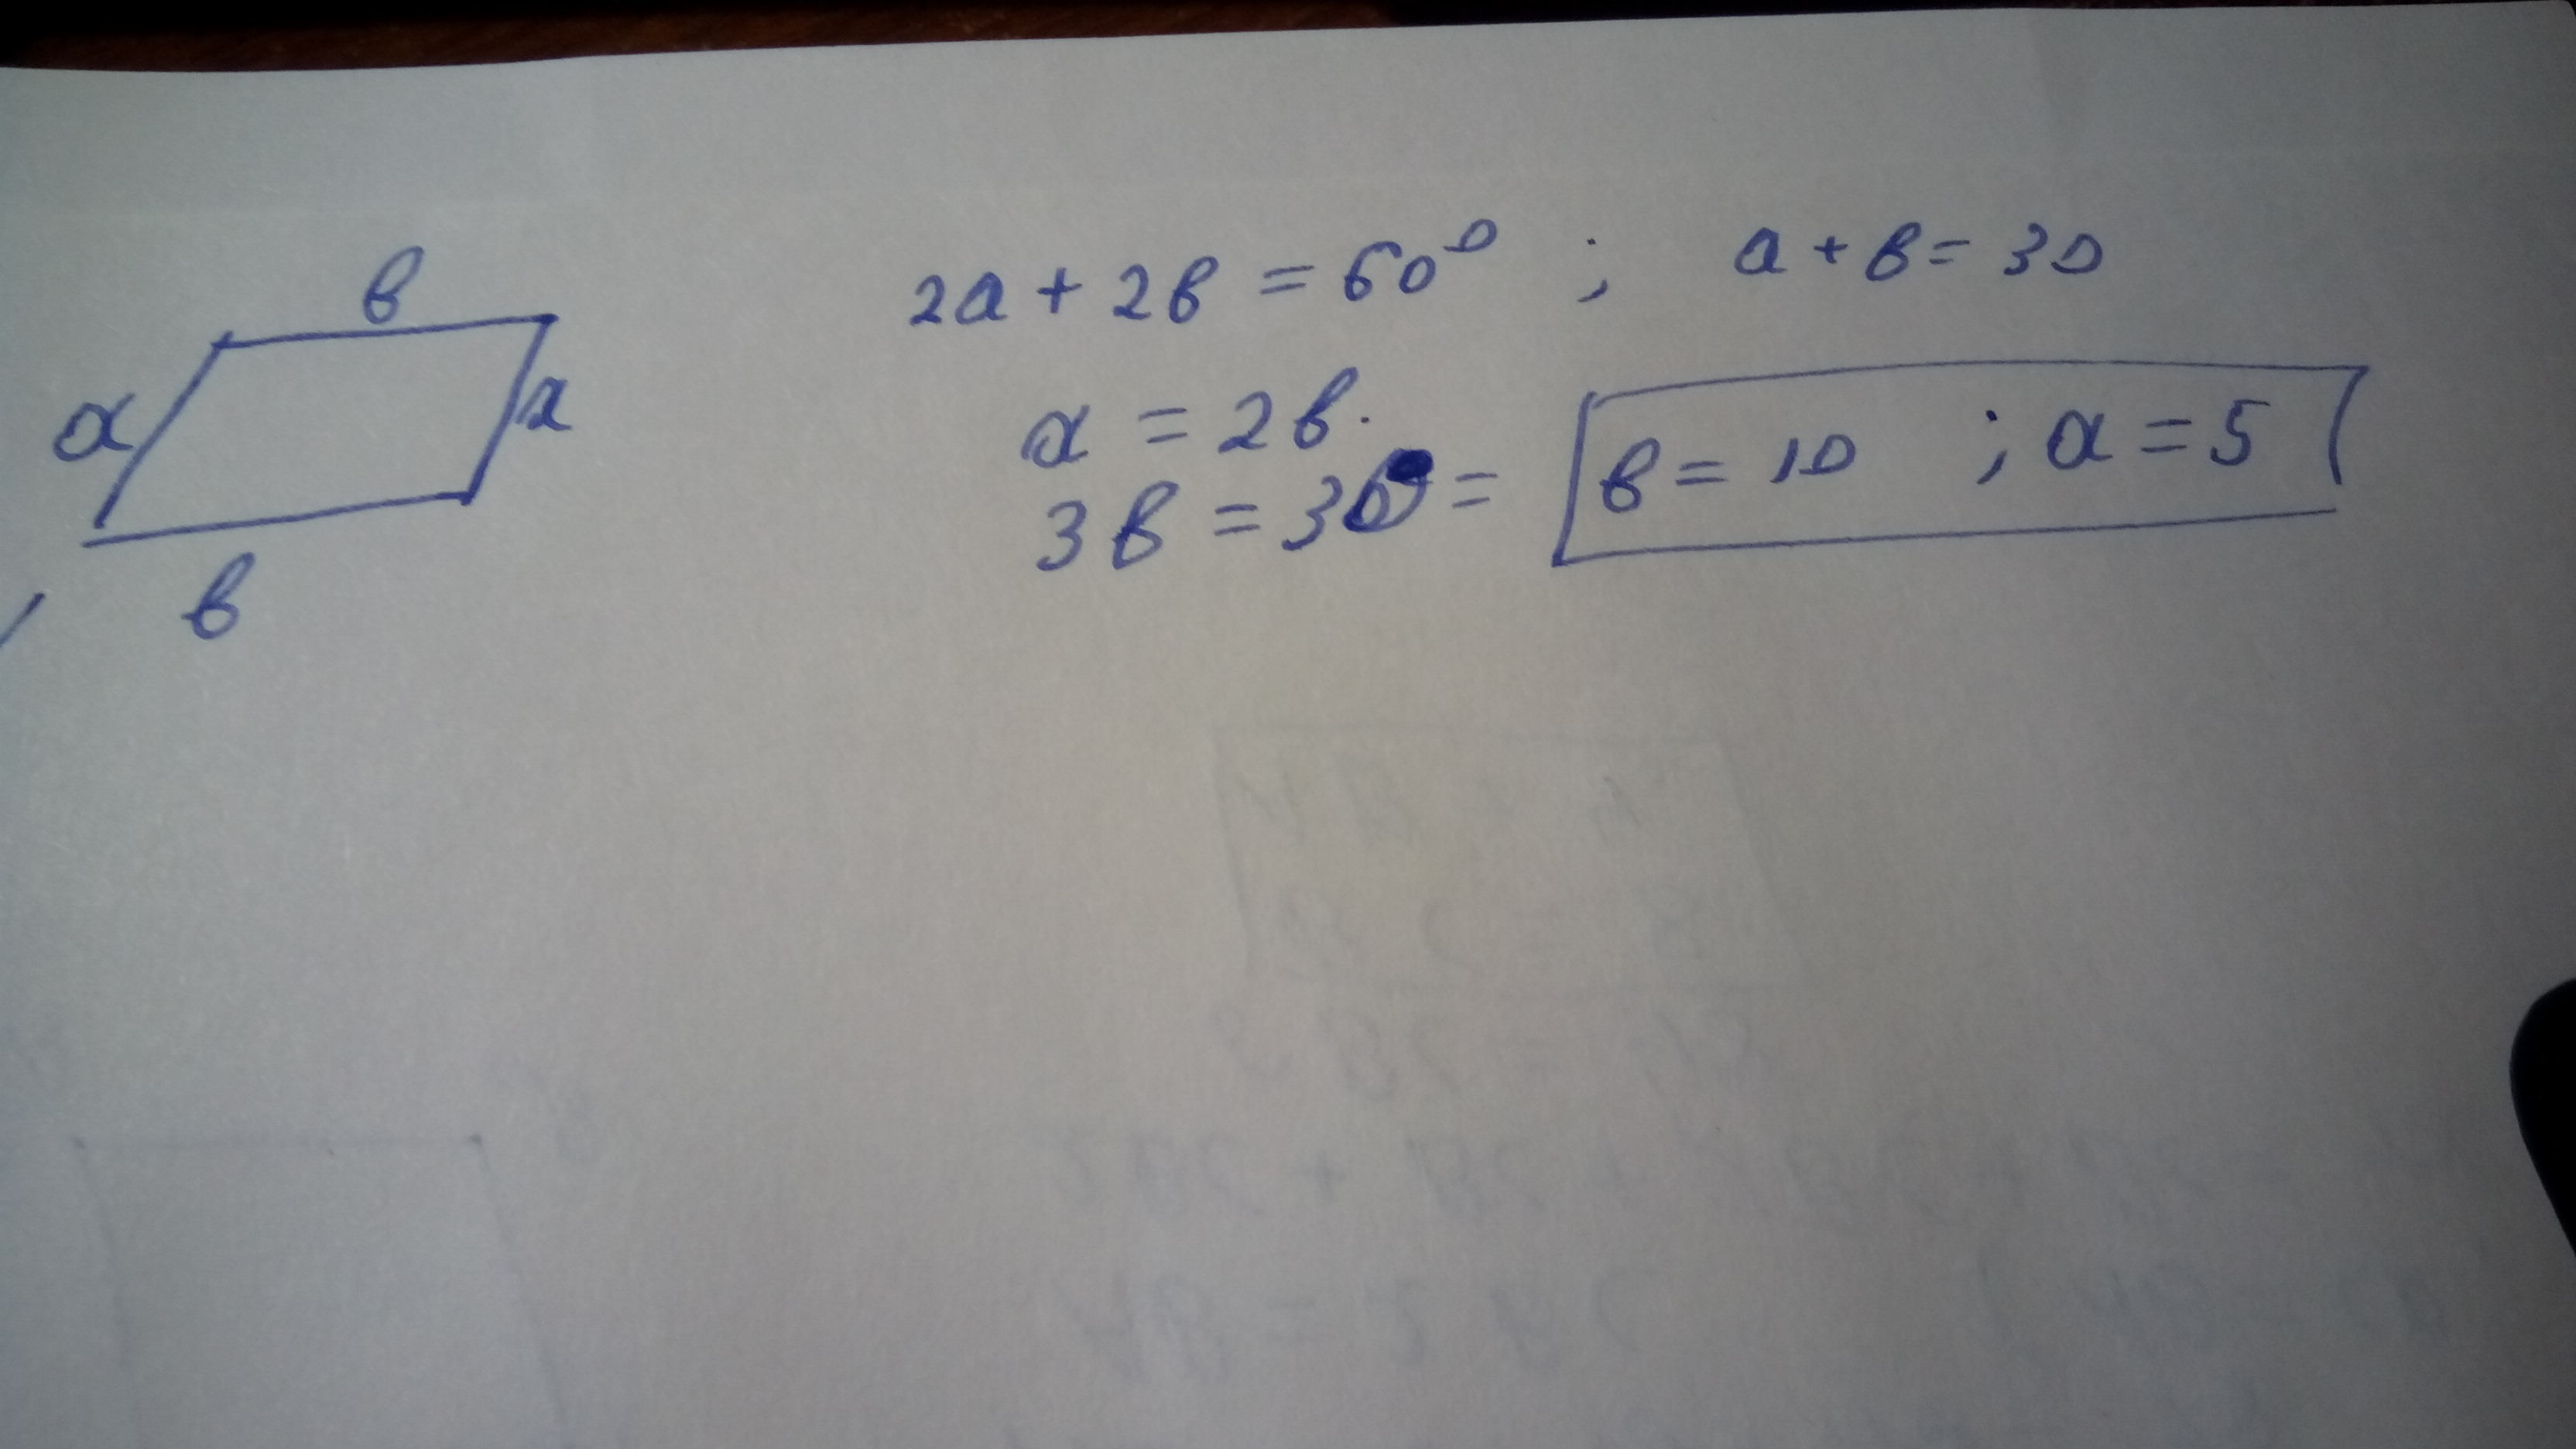 в
a
a
в
2a + 2в = 60⁰ ; a + в = 30
a = 2в.
3в = 30 = в = 10 ; a = 5